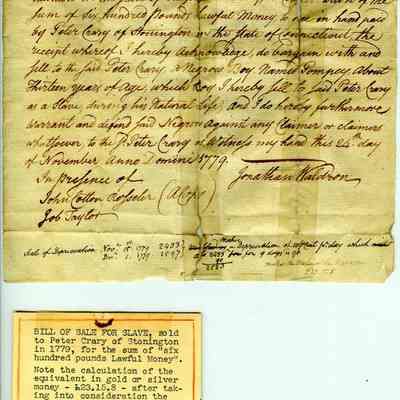 Sum of Six Hundred Pounds Lawful Money to me in hand paid
by Peter Crary of Stonington in the State of Connecticut the
receipt whereof I hereby Acknowledge do bargain with and
sell to the said Peter Crary a Negroe Boy Named Pompey About
Thirteen years of Age, which Boy I hereby sell to said Peter Crary
as a Slave during his Natural Life, And I do hereby furthermore
warrant and defend said Negroe Against any Claimer or claimers
whatsoever to the sd. Peter Crary as Witness my hand this 24th day
of November Anno Domini 1779.
In Presence of
Jonathan Waldron
John Cotton
Job Taylor
Scale of Depreciation Nov. 1779
Dec. 1. 1779
Depreciation
for 9 days is
BILL OF SALE FOR SLAVE, sold
to Peter Crary of Stonington
in 1779, for the sum of "six
hundred pounds Lawful Money".
Note the calculation of the
equivalent in gold or silver
money - £23.15.8 - after tak-
ing into consideration the